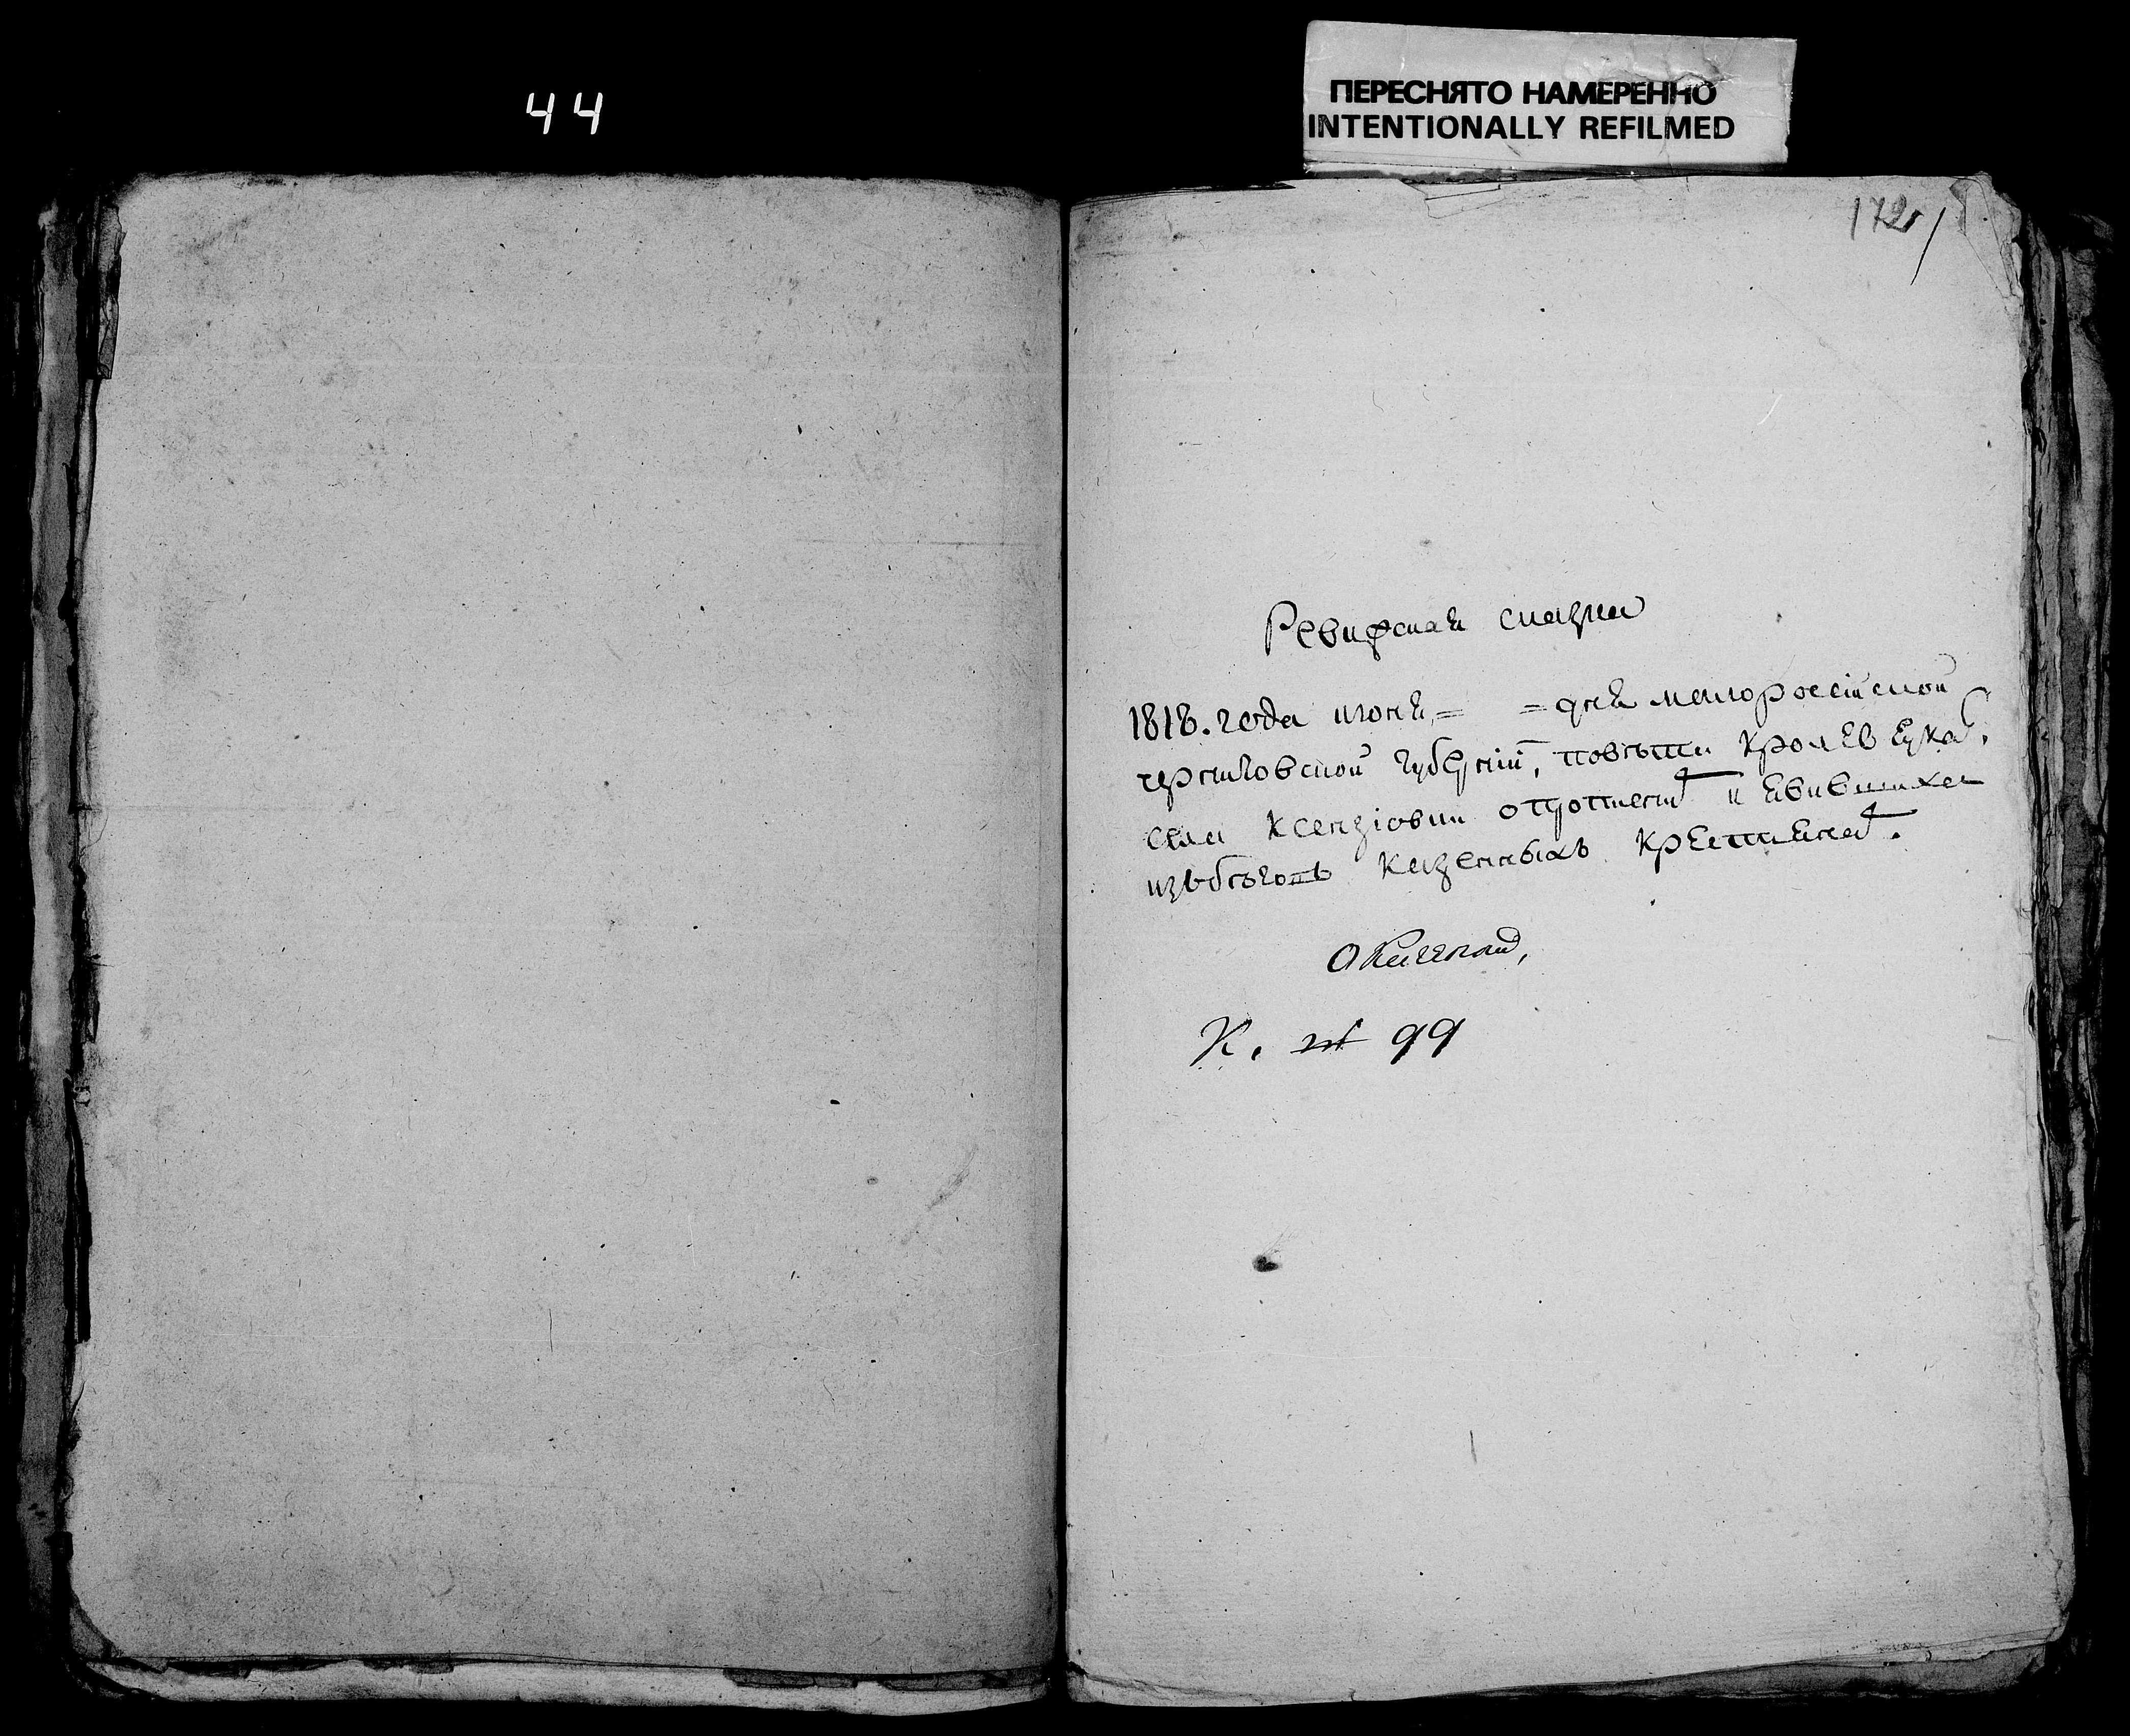 44
ПЕРЕСНЯТО НАМЕРЕННО
INTENTIONALLY REFILMED
172
Ревизская сказка
1818. года июня = = дня малороссійской
черниговской губерніи, повѣта кролевецка.
села Ксензовки и явившихся
изъбѣговъ казенныхъ крестьянах.
К. № 99